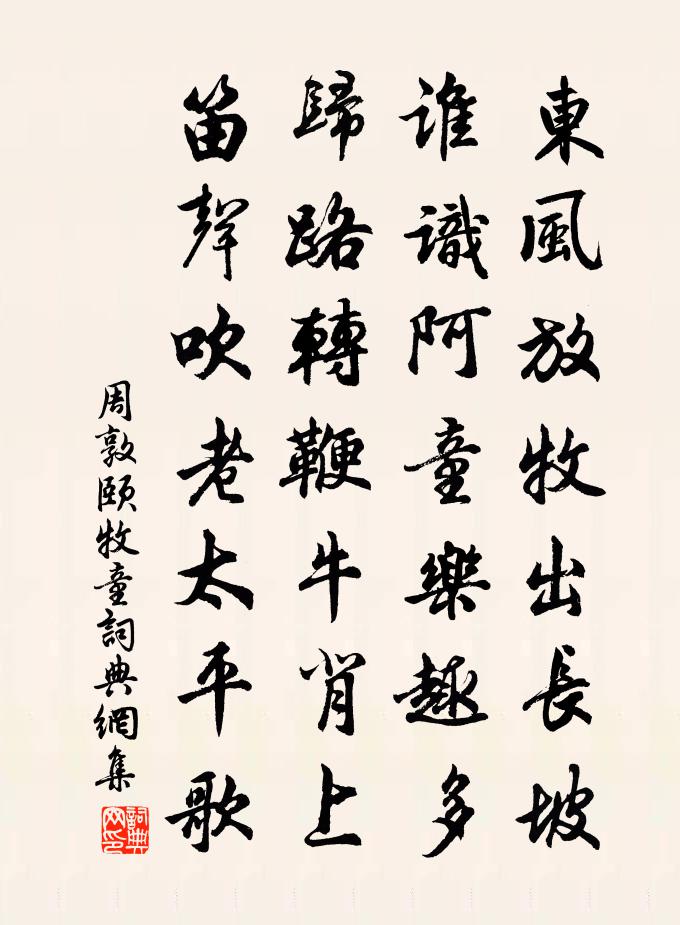 東風放牧出長坡
誰識阿童樂趣多
歸路轉鞭牛背上
笛聲吹老太平歌
周敦頤牧童詞典網集
詞典
网印